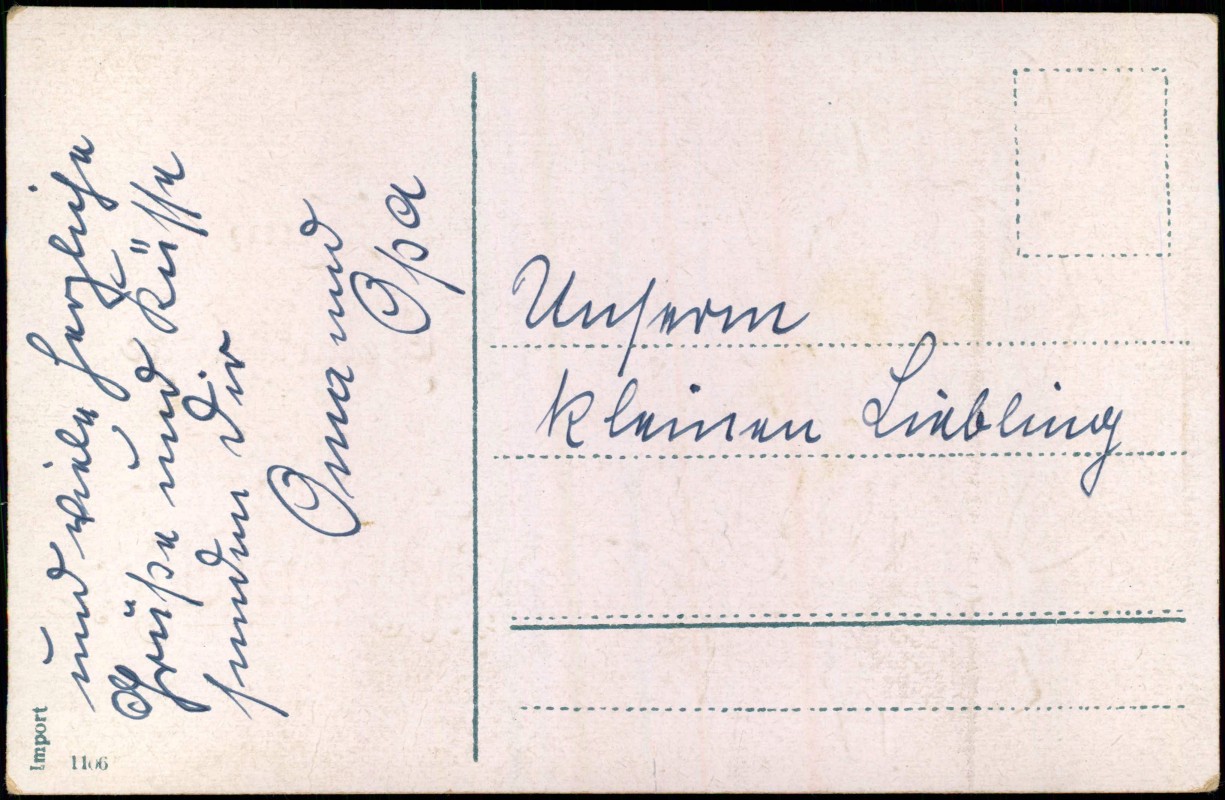 und viele herzliche
Grüße und Küsse
senden Dir
Oma und
Opa
Unserm
kleinen Liebling
Import
1106